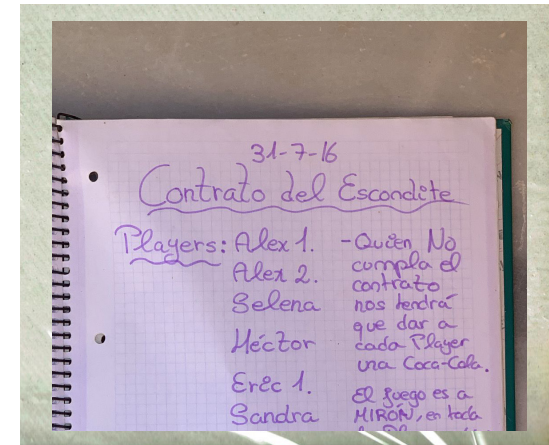 31-7-16
Contrato del Escondite
Players: Alex 1.
Alex 2.
Selena
Héctor
Eric 1.
Sandra
-Quien No
cumpla el
contrato
nos tendrá
que dar a
cada Player
una Coca-Cola.
El juego es a
MIRÓN, en toda